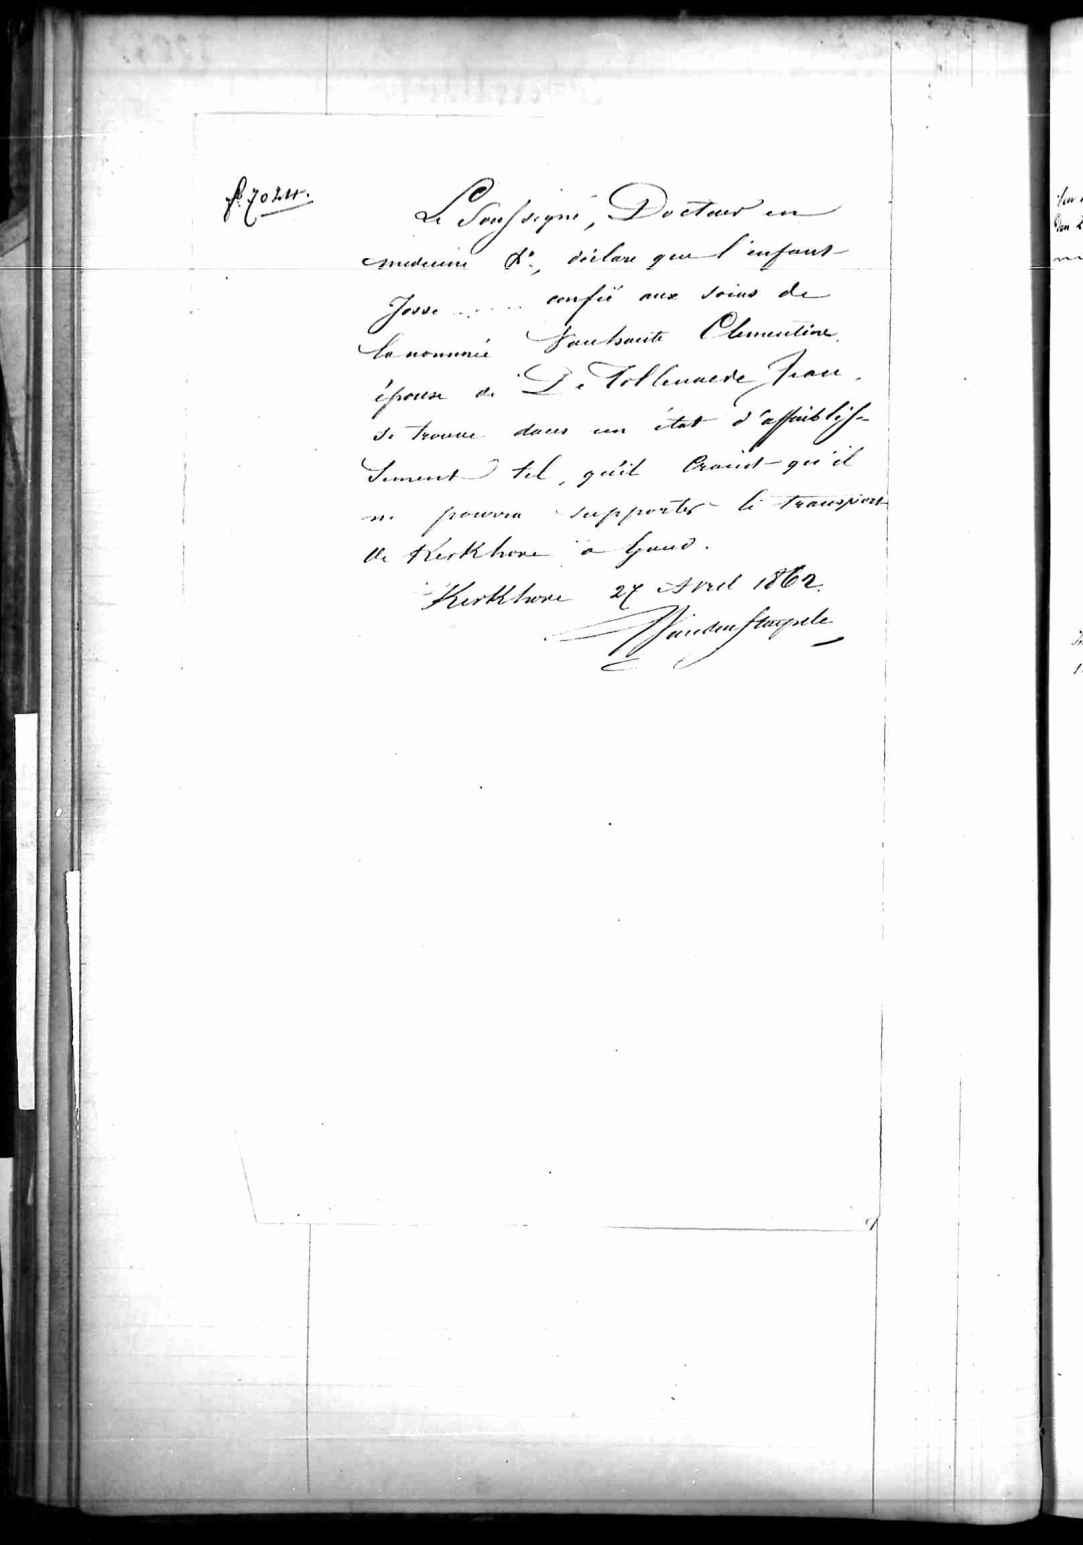 f° 7024.
Le Soussigné, Docteur en
médecine &a, déclare que l'enfant
Josse ...... confié aux soins de
la nommée Vanhoutte Clementine,
épouse de De Tollenaere Jean,
se trouve dans un état d'affaiblis-
sement tel, qu'il craint qu'il
ne pourra supporter le transport
de Kerkhove a Gand.
Kerkhove 27 Avril 1862.